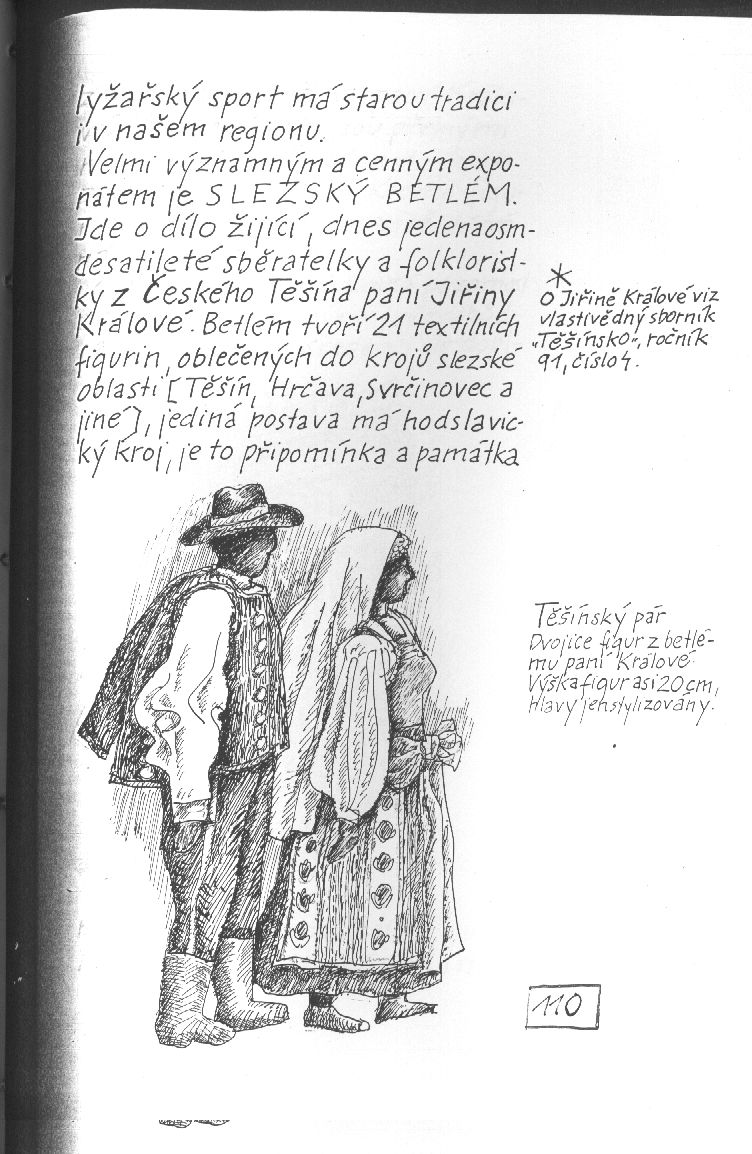 lyžařský sport má starou tradici
i v našem regionu.
Velmi významným a cenným expo-
nátem je SLEZSKÝ BETLÉM.
Jde o dílo žijící, dnes jedenaosm-
desátileté sběratelky a folklorist-
ky z Českého Těšína paní Jiřiny
Králové. Betlém tvoří 21 textilních
figurin, oblečených do krojů slezské
oblasti [Těšín, Hrčava, Svrčinovec a
jiné], jediná postava má hodslavic-
ký kroj, je to připomínka a památka
*
O Jiřině Králové viz
vlastivědný sborník
„Těšínsko“, ročník
91, číslo 4.
Těšínský pár
Dvojice figur z betlé-
mu paní Králové
Výška figur asi 20 cm,
Hlavy jen stylizovány.
110